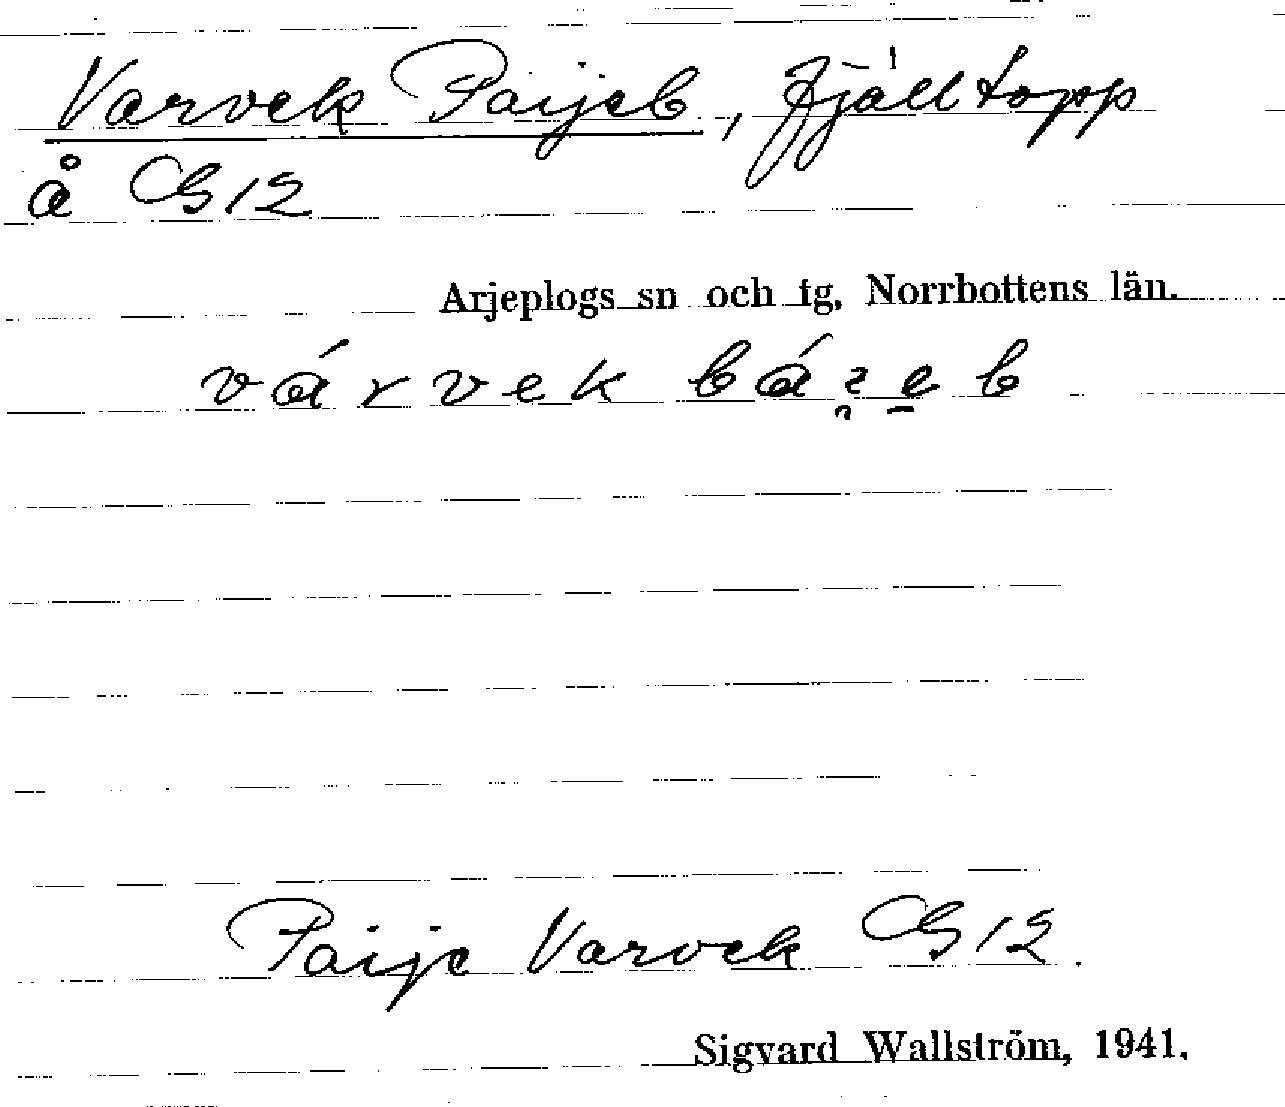 Varvek Paijeb, fjälltopp
å G12
Arjeplogs sn och tg, Norrbottens län.
várvek
Paije Varvek G12.
Sigvard Wallström, 1941.